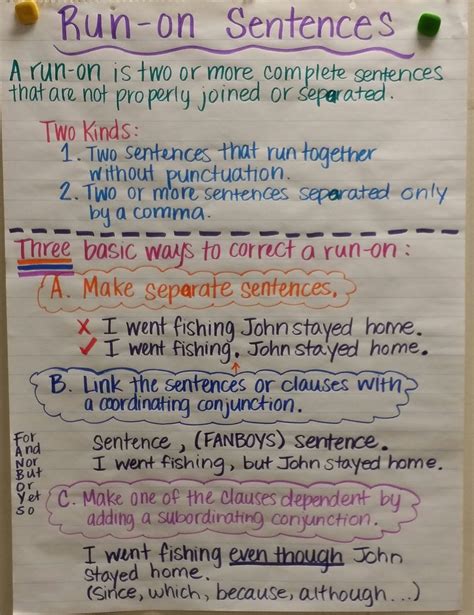 Run-on Sentences
A run-on is two or more complete sentences
that are not properly joined or separated.
Two Kinds:
1. Two sentences that run together
without punctuation.
2. Two or more sentences separated only
by a comma.
Three basic ways to correct a run-on:
A. Make separate sentences.
✗ I went fishing John stayed home.
✓ I went fishing. John stayed home.
B. Link the sentences or clauses with
a coordinating conjunction.
For
And
Nor
But
Or
Yet
So
Sentence, (FANBOYS) sentence.
I went fishing, but John stayed home.
C. Make one of the clauses dependent by
adding a subordinating conjunction.
I went fishing even though John
stayed home.
(Since, which, because, although...)